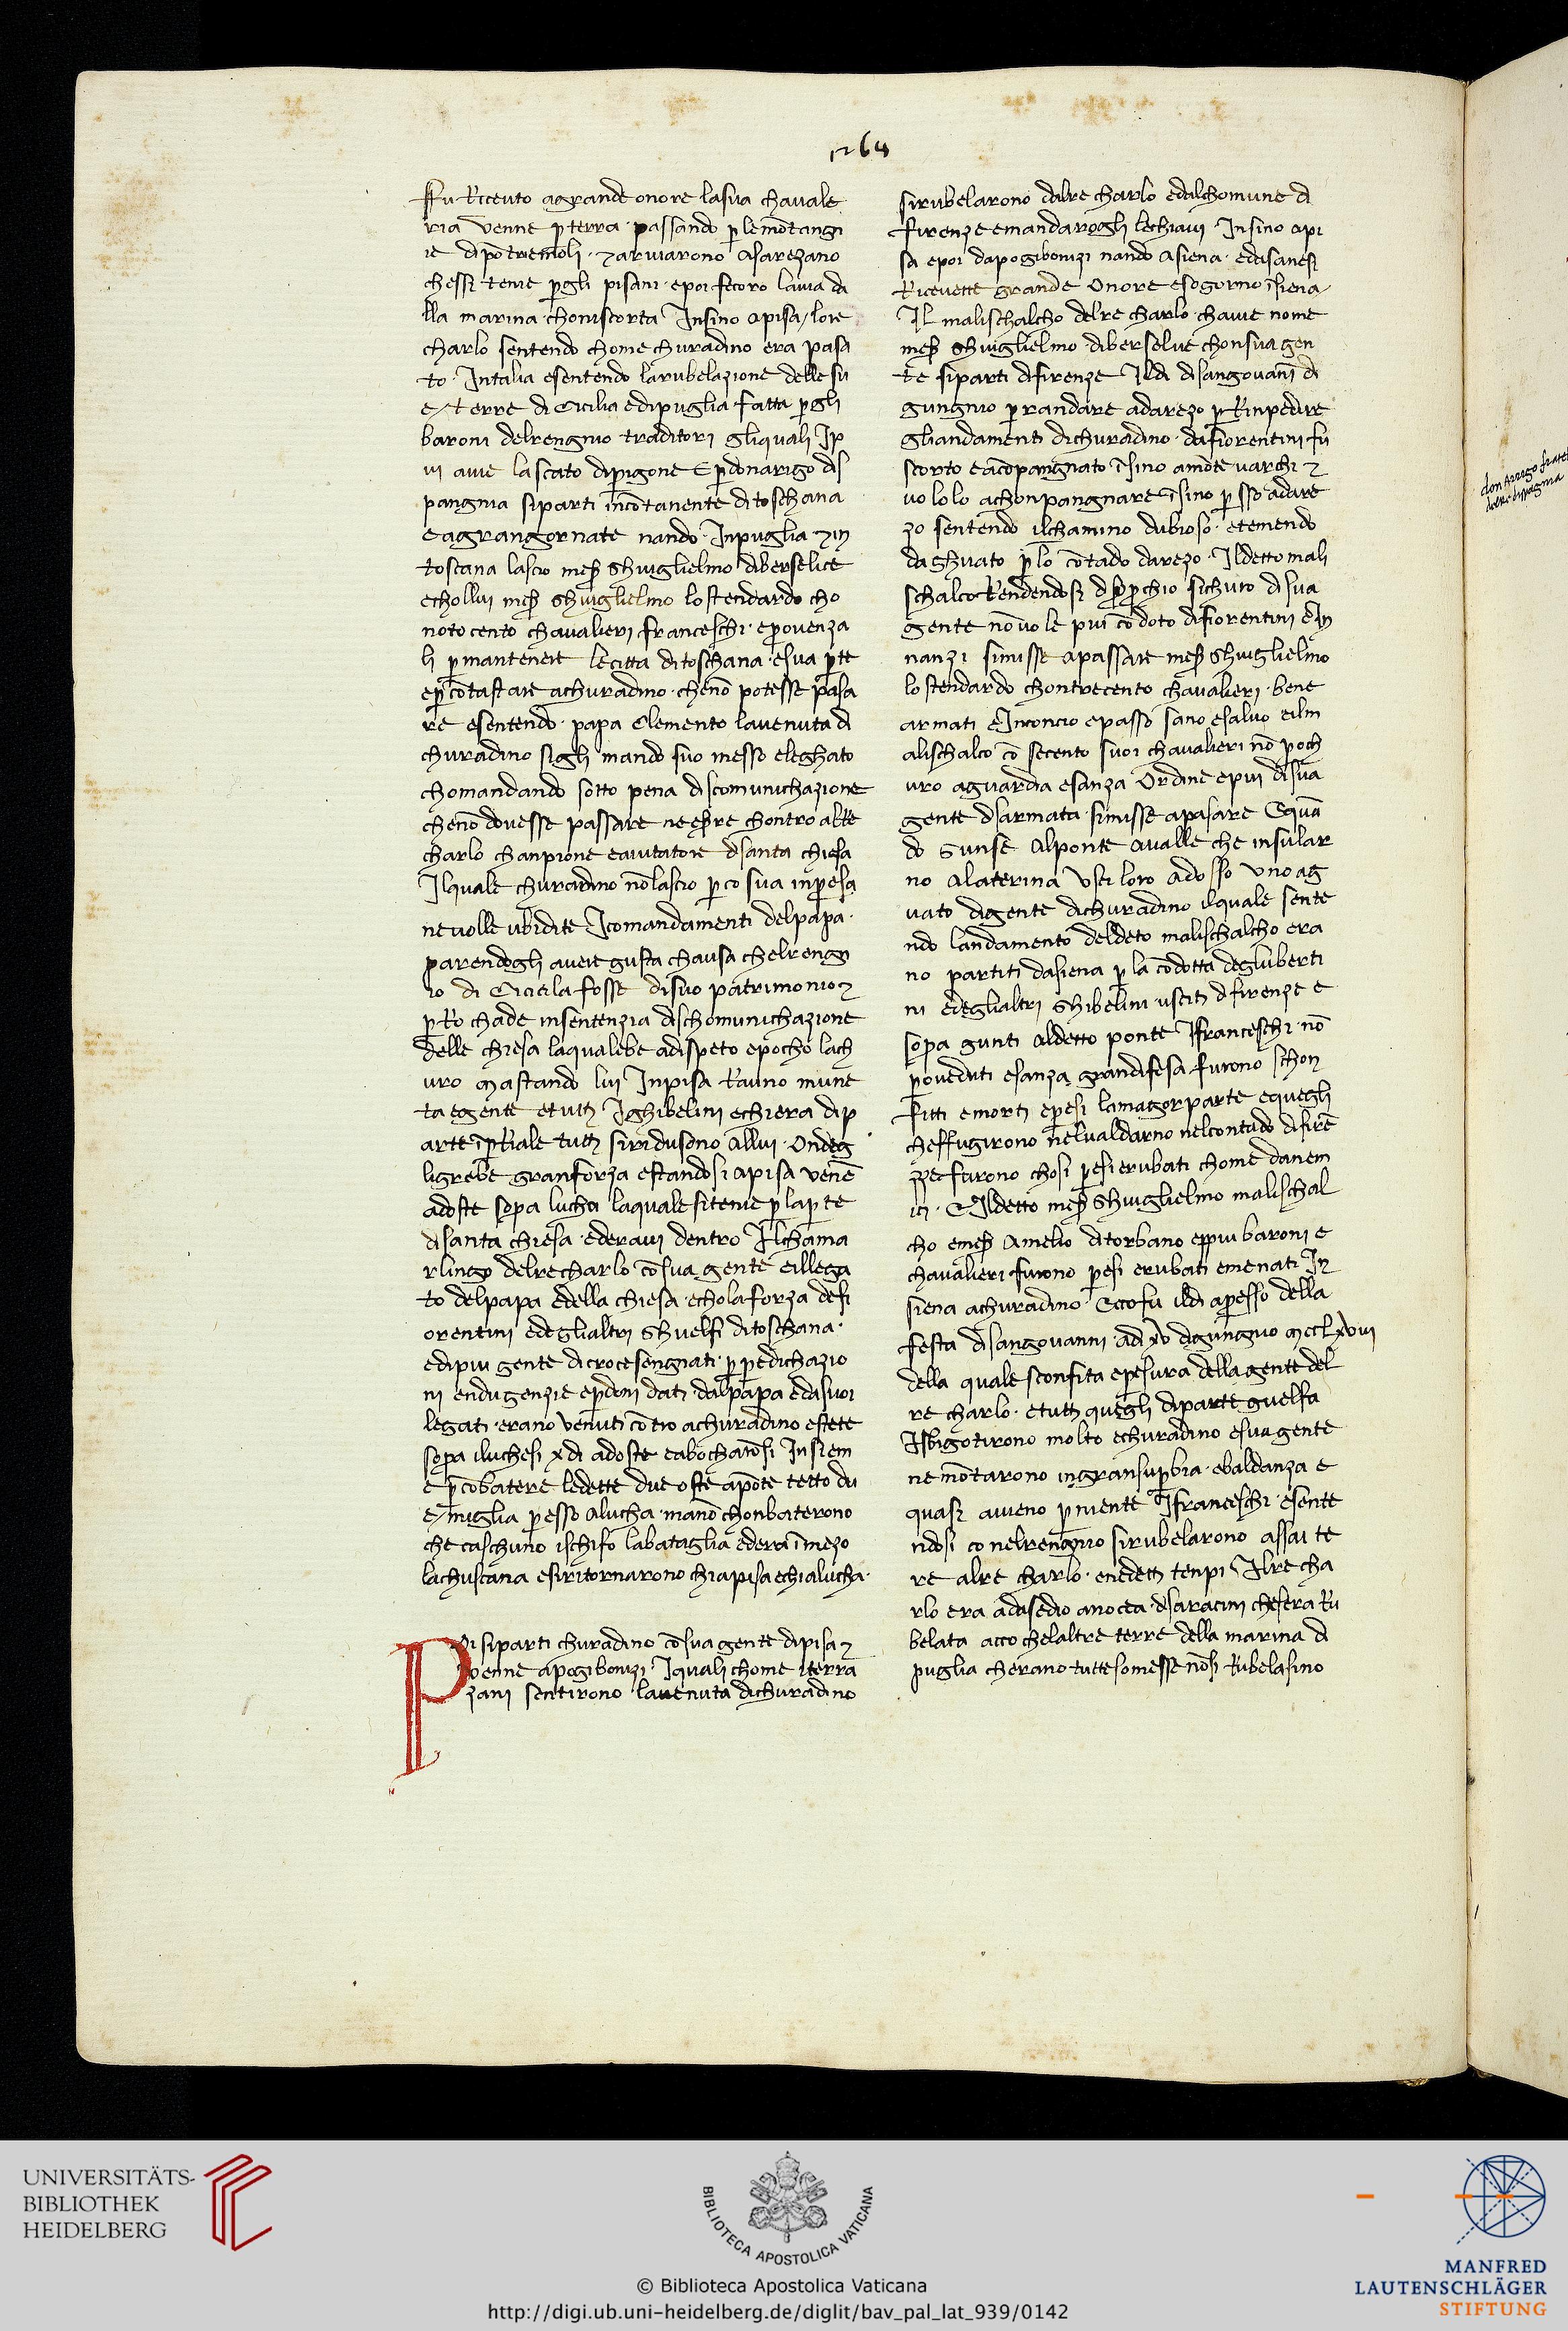 1264
ffu Ricevto agrande onore lasua chauale
ria venne p̄ terra · passando p̄ lemōtangn
ie dipōtriemoli · 7 arivarono asarezano
chessi tenie p̄gli pisani · epoi fecoro lauia da
lla marina choniscorta Insino apisa / lore
charlo sentendo chome churadino era pasa
to · Intalia esentendo larubelazione delle su
e / terre di Cicilia edipuglia fatta p̄gli
baroni delrengnio traditori gliquali Ip
ui auie lasciato dip̄igone E p̄donarigo dis
pangnia siparti incōtanente ditoschana
eagrangornate nando · Inpuglia · 7 in
toscana lascio meß Ghuiglielmo diberselice
echollui meß Ghuiglielmo lo stendardo cho
notocento chaualieri franceschi · ep̄ouenza
li p̄mantenere lecitta ditoschana · esua p̄te
ep̄cōtastare achuradino · chenō potesse pasa
re esentendo · papa Clemento lauenuta di
churadino sigli mando suo messo eleghato
chomandando sotto pena discomunichazione
chenō douesse passare neesere chontro alre
charlo chanpione eaiutatore disanta chiesa
Ilquale churadino nōlascio p̄cio sua inp̄esa
neuolle ubidire Icomandamenti delpapa ·
parendogli auere giusta chausa chelrengn
io di Cicilia fosse disuo patrimonio 7
p̄ro chade insentenzia dischomunichazione
delle chiesa laqualebe adispeto epocho lach
uro Mastando lui Inpisa Rauno mune
ta egente etuti Ighibelini echiera dip
arte ip̄eriale tutti siridusono allui · Ondeg
ligrebe granforza estandosi apisa venē
adoste sop̄a lucha laquale sitenie p̄ lap̄te
disanta chiesa · ederaui dentro Ilchama
rlingo delrecharlo cōsua gente eillega
to delpapa edella chiesa · echolaforza defi
orentini edeglialtri Ghuelfi ditoschana ·
edipiu gente dicrocesengnati · p̄ p̄edichazio
ni endugenzie ep̄doni dati dalpapa edasuoi
legati · erano venuti cōtro achuradino estete
sop̄a iluchesi x di adoste eabocharōsi Insiem
e p̄cōbatere ledette due oste apōte tetto du
e / miglia p̄esso alucha · manō chonbaterono
che caschuno ischifo labataglia ederaīmezo
lachusciana esiritornarono chiapisa echialucha ·
Poi siparti churadino cōsua gente dipisa 7
venne apogibonizi · Iquali chome iterra
zani sentirono lauenuta dichuradino
sirubelarono dalre charlo edalchomune di
firenze emandarogli lechiaui · Insino api
sa epoi dapogibonizi nando asiena · edasanesi
Riceuette grande Onore esogiorno īsiena /
Il malischalcho delre charlo · chauie nome
meß Ghuiglielmo · diberselue chonsua gen
te siparti difirenze Ildi disangiouāni di
gungnio p̄randare adarezo p̄Rinpedire
gliandamenti dichuradino · dafiorentini fu
scorto eacōpangnato īsino amōte uarchi 7
uololo achonpangnare īsino p̄sso adare
zo sentendo ilchamino dubioso · etemendo
daghuato p̄lo cōtado darezo · Ildetto mali
schalco Rendendosi disop̄chio sichuro disua
gente nōuole piu cōdoto difiorentini ein
nanzi simisse apassare meß Ghuiglielmo
lo stendardo chontrecento chaualieri · bene
armati einconcio epasso sano esaluo eilm
alischalco cō secento suoi chaualieri nō poch
uro aguardia esanza Ordine epiu disua
gente disarmata · simisse apasare Equā
do Giunse Alponte aualle che insular
no alaterina Vsci loro adosso vno ag
uato digente dichuradino ilquale sente
ndo landamento deldeto malischalcho era
no partiti dasiena p̄ la cōdotta degluberti
ni edeglialtri Ghibelini usciti difirenze e
sop̄a giunti aldetto ponte Ifranceschi · nō
p̄oueduti esanza grandifesa furono schon
fitti emorti ep̄esi lamagiorparte equegli
cheffugirono neluardarno nelcontado difirē
ze furono chosi p̄esi erubati chome danem
ici · Eildetto meß Ghuiglielmo malischal
cho emeß Amelio ditorbano eppiu baroni e
chaualieri furono p̄esi erubati emenati In
siena achuradino · Eccofu ildi ap̄esso della
festa disangiouanni · adi xxv digungnio MccLxviii
della quale sconfita ep̄esura della gente del
re charlo · etutti quegli diparte guelfa
Isbigotirono molto echuradino esuagente
nemōtarono ingransup̄bia · ebaldanza e
quasi auieno p̄niente Ifranceschi · esente
ndosi co nelrengnio sirubelarono assai te
re alre charlo · enedetti tenpi Ilre cha
rlo era adasedio anocea · disaracini chesera Ru
belata acco chelaltre terre della marina di
puglia cherano tutte somesse nōsi Rubelasino
don arrigo fratel
dire dispagnia
UNIVERSITÄTS-
BIBLIOTHEK
HEIDELBERG
BIBLIOTECA APOSTOLICA VATICANA
© Biblioteca Apostolica Vaticana
http://digi.ub.uni-heidelberg.de/diglit/bav_pal_lat_939/0142
MANFRED
LAUTENSCHLÄGER
STIFTUNG